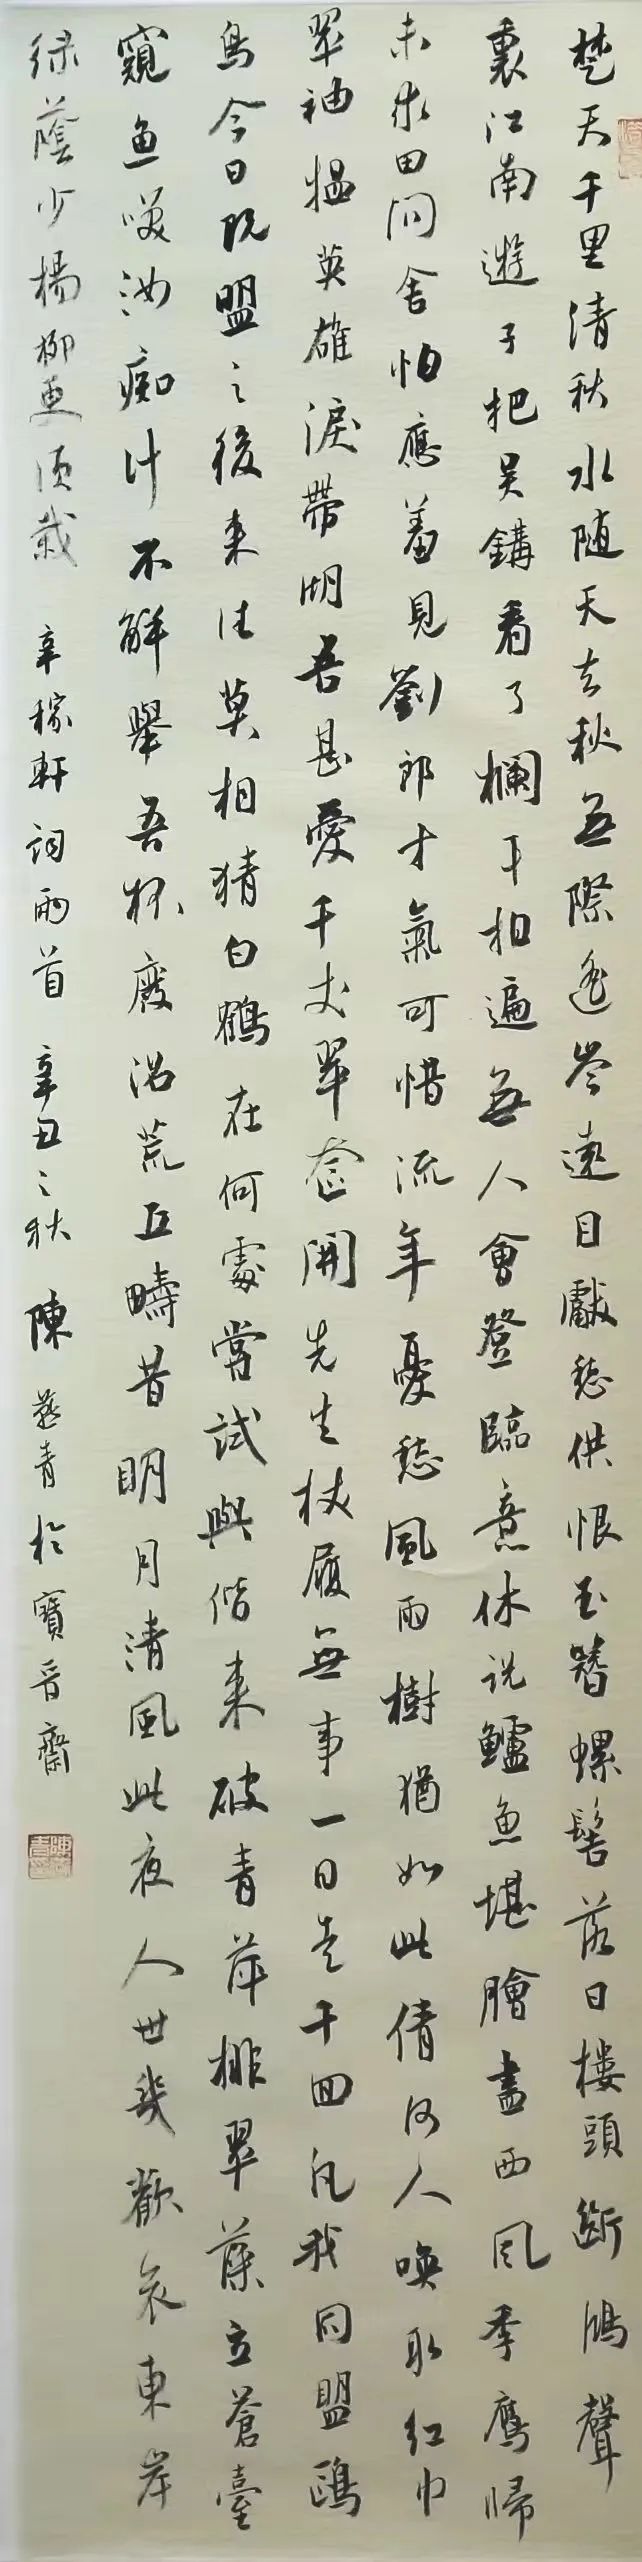 楚天千里清秋水随天去秋無際遙岑遠目獻愁供恨玉簪螺髻落日樓頭斷鴻聲
裏江南遊子把吴鈎看了欄干拍遍無人會登臨意休说鱸魚堪膾盡西風季鹰歸
未求田问舍怕應羞見劉郎才氣可惜流年憂愁風雨樹猶如此倩何人喚取红巾
翠袖揾英雄淚帶湖吾甚愛千丈翠奩開先生杖屨無事一日走千回凡我同盟鷗
鳥今日既盟之後来往莫相猜白鶴在何處嘗試與偕来破青萍排翠藻立蒼臺
窺魚笑汝痴计不解舉吾杯廢沼荒丘疇昔明月清風此夜人世幾歡哀東岸
绿蔭少楊柳更須栽 辛稼軒詞兩首 辛丑之秋 陳燕青於寶晋齋